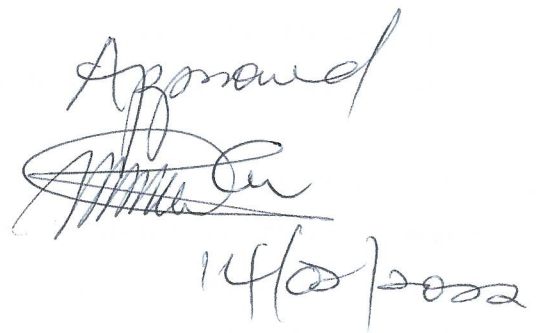 Approved
14/02/2022